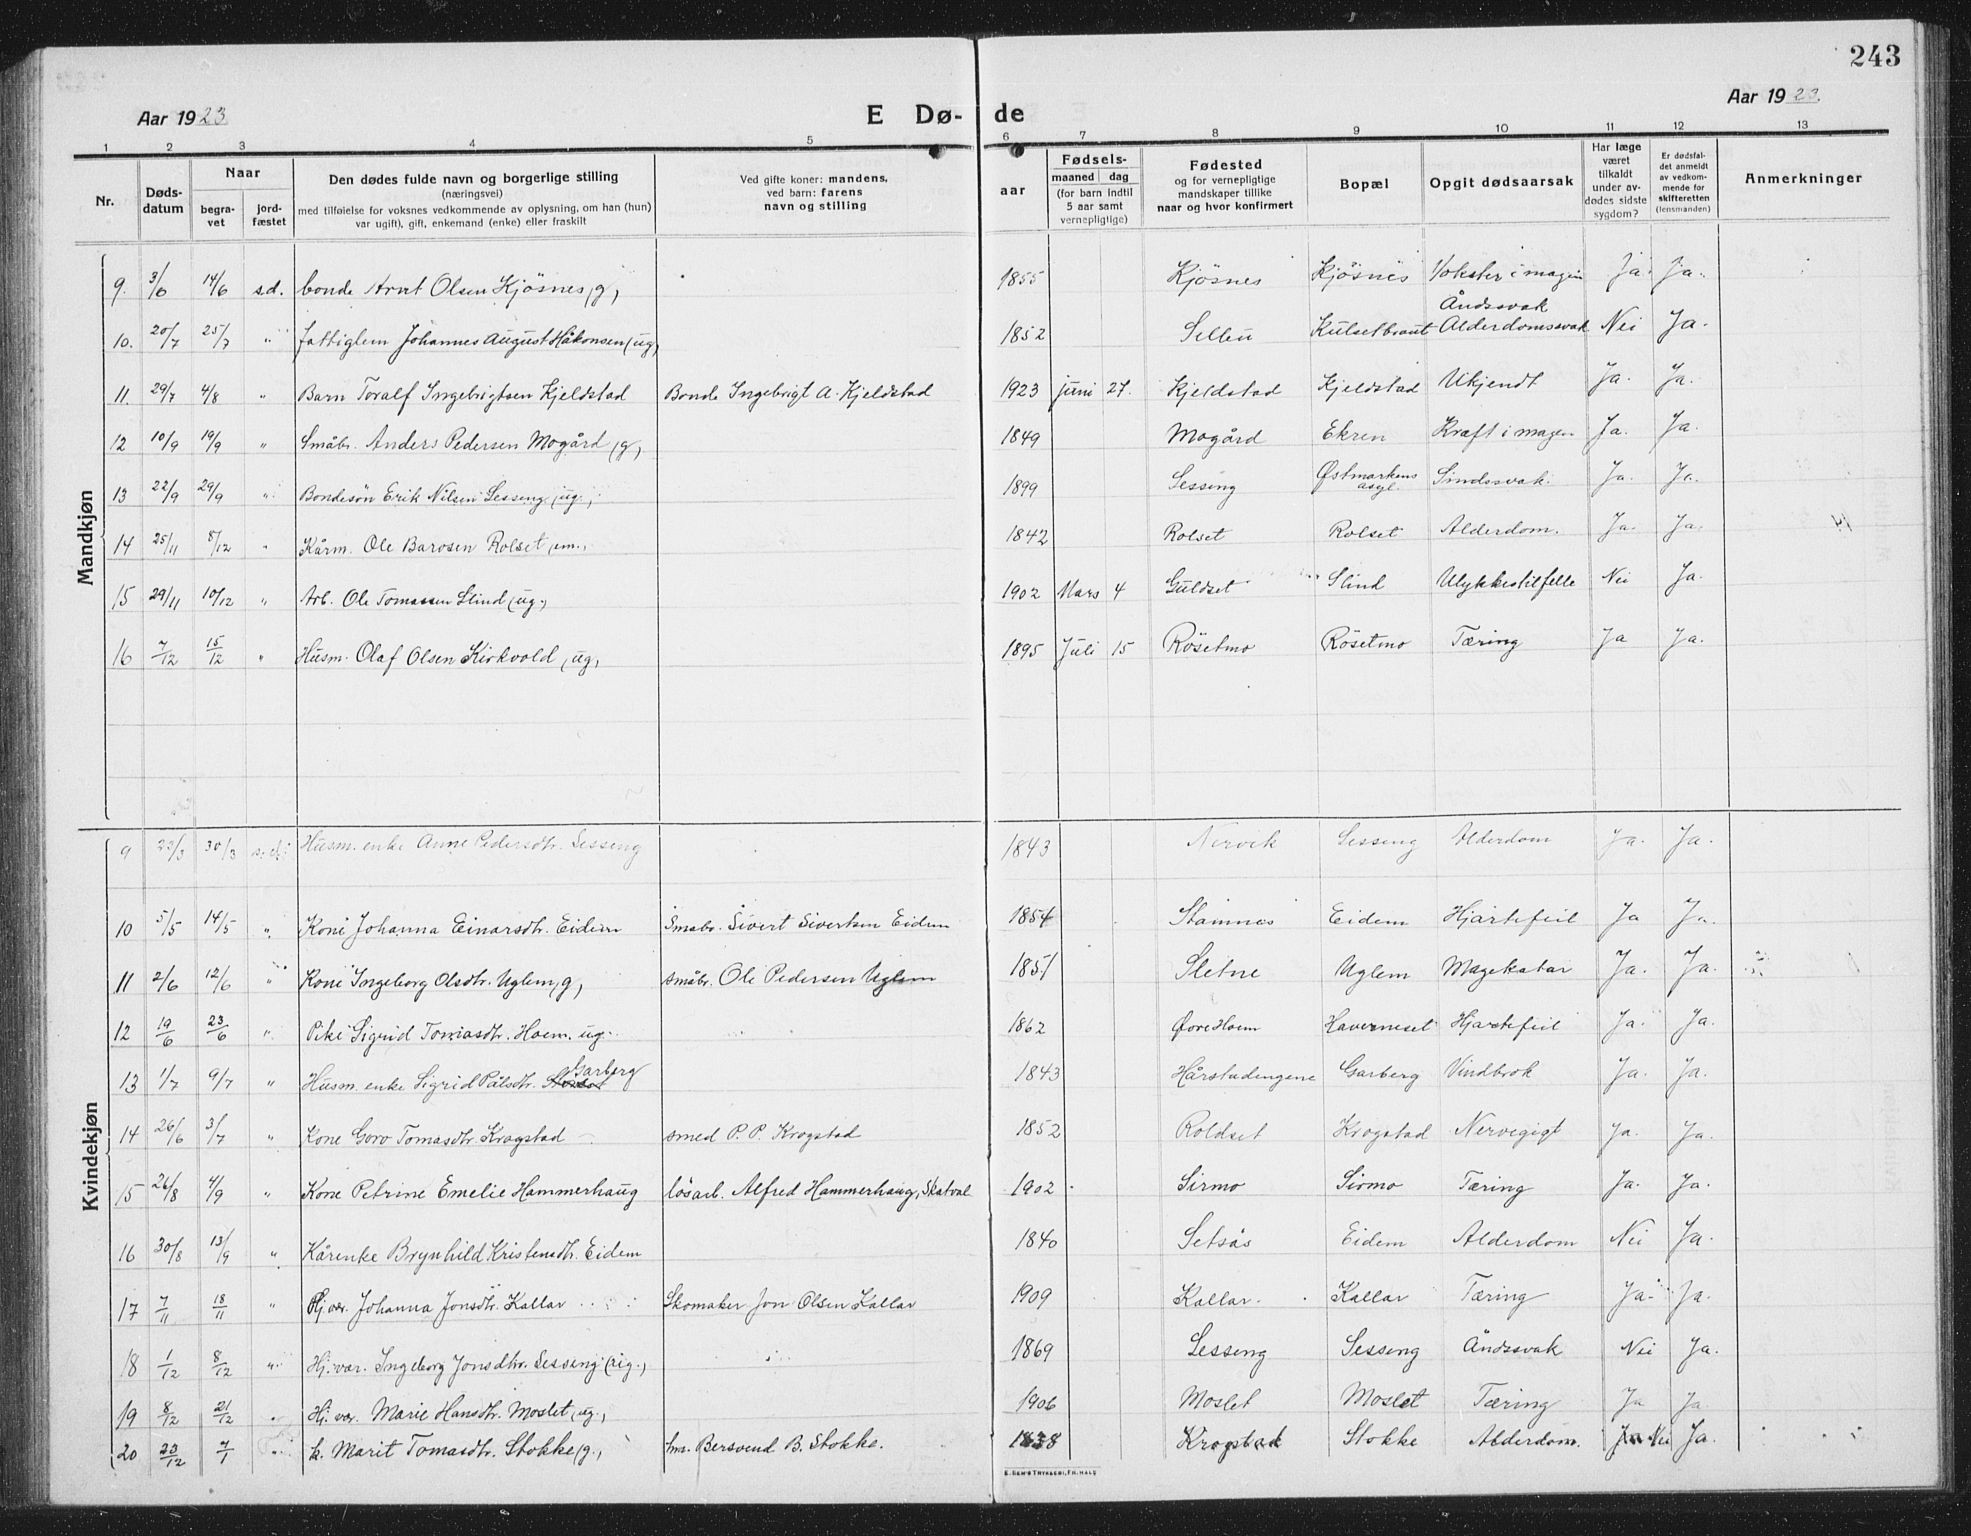 243
Aar 1923 E Dø- de Aar 1923.
1 2 3 4 5 6 7 8 9 10 11 12 13
Nr. Døds-datum Naar begra-vet jord-fæstet Den dødes fulde navn og borgerlige stilling (næringsvei) med tilføielse for voksnes vedkommende av oplysning, om han (hun) var ugift), gift, enkemand (enke) eller fraskilt Ved gifte koner: mandens, ved barn: farens navn og stilling aar Fødsels- maaned dag (for barn indtil 5 aar samt vernepligtige) Fødested og for vernepligtige mandskaper tillike naar og hvor konfirmert Bopæl Opgit dødsaarsak Har læge været tilkaldt under av-dødes sidste sygdom? Er dødsfal-det anmeldt av vedkom-mende for skifteretten (lensmanden) Anmerkninger
Mandkjøn
9. 3/6 14/6 s.d. bonde Arnt Olsen Kjösnes (g) 1855 Kjösnes Kjösnes Vokster i magen Ja. Ja.
10. 20/7 25/7 " fattiglem Johannes August Håkonsen (ug) 1852 Selbu Kulsetbraut Åndssvak Alderdomssvak Nei Ja.
11. 29/7 4/8 " Barn Toralf Ingebrigtsen Kjeldstad Bonde Ingebrigt A. Kjeldstad 1923 juni 27. Kjeldstad Kjeldstad Ukjendt Ja. Ja.
12 10/9 19/9 " Småbr. Anders Pedersen Mogård (g) 1849 Mogård Ekren Kræft i magen Ja. Ja.
13 22/9 29/9 " Bondesön Erik Nilsen Sesseng (ug.) 1899 Sesseng Østmarkens asyl. Sindssvak. Ja. Ja.
14 25/11 8/12 " Kårm. Ole Barosen Rolset, em., 1842 Rolset Rolset Alderdom. Ja. Ja.
15 29/11 10/12 " Arb. Ole Tomassen Slind (ug.) 1902 Mars 4 Guldset Slind Ulykkestilfelle Nei Ja.
16 7/12 15/12 " Husm. Olaf Olsen Kirkvold (ug) 1895 Juli 15 Rösetmo Rösetmo Tæring Ja Ja.
Kvindekjøn
9 23/3 30/3 s.d. Husm. enke Anne Pedersdtr. Sesseng 1843 Nervik Sesseng Alderdom Ja. Ja.
10 5/5 14/5 " Kone Johanna Einarsdtr. Eidem Småbr. Sivert Sivertsen Eidem 1854 Stamnes Eidem Hjartefeil Ja Ja.
11 2/6 12/6 " Kone Ingeborg Olsdtr. Uglem (g) småbr. Ole Pedersen Uglem 1851 Sletne Uglem Magekatar Ja. Ja.
12 19/6 23/6 " Pike Sigrid Tomasdtr. Hoem. ug. 1862 Øvre Hoem Haverneset Hjartefeil Ja. Ja.
13 1/7 9/7 " Husm. enke Sigrid Pålsdtr. Garberg 1843 Hårstadengene Garberg Vindbrok Ja. Ja.
14 26/6 3/7 " Kone Goro Tomasdtr. Krogstad smed P. P. Krogstad 1852 Roldset Krogstad Nervegigt Ja. Ja.
15 26/8 4/9 " Kone Petrine Emelie Hammerhaug lösarb. Alfred Hammerhaug, Skatval 1902 Sirmo Sirmo Tæring Ja. Ja.
16 30/8 13/9 " Kårenke Brynhild Kristensdtr. Eidem 1840 Setsås Eidem Alderdom Nei Ja.
17 7/11 18/11 " Hj. vær. Johanna Jonsdtr. Kallar Skomaker Jon Olsen Kallar 1909 Kallar Kallar Tæring Ja. Ja.
18 1/12 8/12 " Hj. vær. Ingeborg Jonsdtr. Sesseng (ug.) 1869 Sesseng Sesseng Åndssvak Nei Ja.
19 8/12 21/12 " Hj. vær. Marie Hansdtr. Moslet (ug.) 1906 Moslet Moslet Tæring Ja Ja.
20 23/12 7/1 " k. Marit Tomasdtr. Stokke (g.) hm. Bersvend B. Stokke. 1838 Krogstad Stokke Alderdom. Nei Ja.
E. SEM'S TRYKKERI, FR.HALD